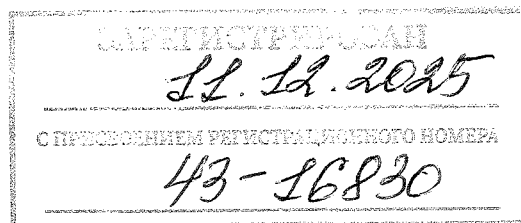 ЗАРЕГИСТРИРОВАН
11.12.2025
С ПРИСВОЕНИЕМ РЕГИСТРАЦИОННОГО НОМЕРА
43-16830